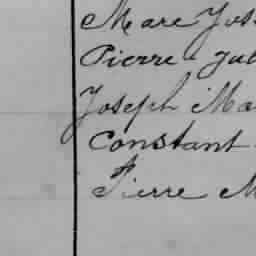 Marc Jos
Pierre Jul
Joseph Ma
Constant
Pierre M